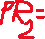 PR₂=